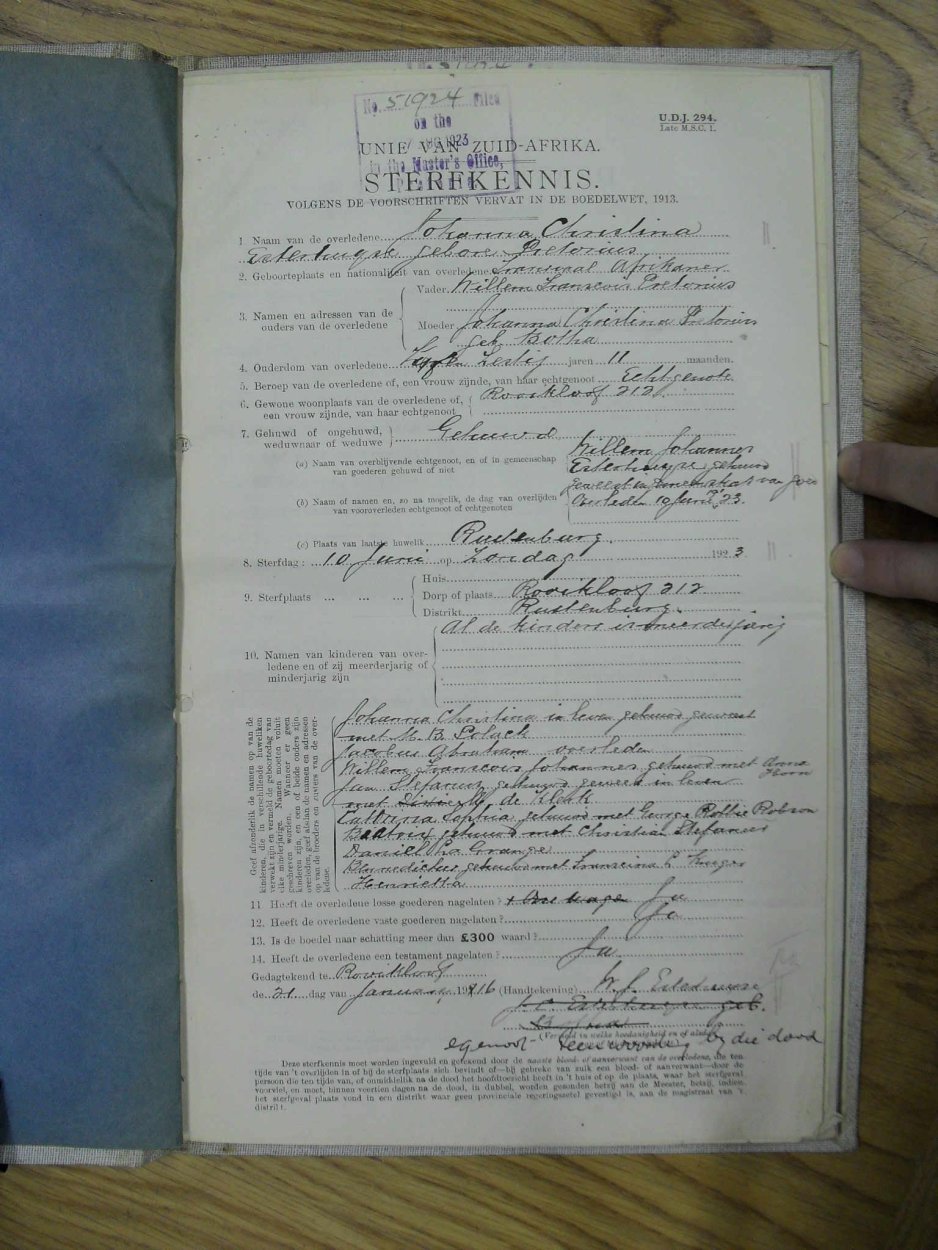 No. 51924 Filed
on the
1923
in the Master's Office,
U.D.J. 294.
Late M.S.C. 1.
UNIE VAN ZUID-AFRIKA.
STERFKENNIS.
VOLGENS DE VOORSCHRIFTEN VERVAT IN DE BOEDELWET, 1913.
1. Naam van de overledene Johanna Christina
Esterhuyse geboren Pretorius
2. Geboorteplaats en nationaliteit van overledene Transvaal Afrikaner
3. Namen en adressen van de ouders van de overledene
Vader Willem Franscois Pretorius
Moeder Johanna Christina Pretorius
geb. Botha
4. Ouderdom van overledene Zestig jaren 11 maanden.
5. Beroep van de overledene of, een vrouw zijnde, van haar echtgenoot Echtgenote
6. Gewone woonplaats van de overledene of, een vrouw zijnde, van haar echtgenoot Rooikloof 212
7. Gehuwd of ongehuwd, weduwnaar of weduwe Gehuwd
(a) Naam van overblijvende echtgenoot, en of in gemeenschap van goederen gehuwd of niet
Willem Johannes
Esterhuyse gehuwd
(b) Naam of namen en, zo na mogelik, de dag van overlijden van vooroverleden echtgenoot of echtgenoten
Overleden 10 Junie '23
(c) Plaats van laatste huwelik Rustenburg.
8. Sterfdag: 10 Juni op Zondag 1923
9. Sterfplaats ... ... ...
Huis
Dorp of plaats Rooikloof 212
Distrikt Rustenburg.
10. Namen van kinderen van overledene en of zij meerderjarig of minderjarig zijn
Al de kinders is meerderjarig
Geef afzonderlik de namen op van de kinderen, die in verschillende huweliken verwekt zijn en vermeld de geboortedag van elke minderjarige. Namen moeten voluit geschreven worden. Wanneer er geen kinderen zijn, en een of beide ouders zijn overleden, geef alsdan de namen en adressen op van de broeders en zusters van de overledene.
Johanna Christina in leven gehuwd geweest
met M. B. Solack
Jacobus Abraham overleden
Willem Franscois Johannes gehuwd met Anna
Jan Stefanus gehuwd geweest in leven
met de Klerk
Catharia Sophia gehuwd met George Robson
Beatrix gehuwd met Christian Stefanus
Daniel La Grange
Benedictus gehuwd met Franscina C. Kruger
Henrietta
11. Heeft de overledene losse goederen nagelaten? Ja
12. Heeft de overledene vaste goederen nagelaten? Ja
13. Is de boedel naar schatting meer dan £300 waard?
14. Heeft de overledene een testament nagelaten? Ja
Gedagtekend te Rooikloof
de 21 dag van Januarie 1916 (Handtekening) W. J. Esterhuyse
J. C. Esterhuyse geb.
(Vermeld in welke hoedanigheid en of
by die dood
Deze sterfkennis moet worden ingevuld en getekend door de naaste bloed- of aanverwant van de overledene, die ten
tijde van 't overlijden in of bij de sterfplaats zich bevindt of—bij gebreke van zulk een bloed- of aanverwant—door de
persoon die ten tijde van, of onmiddelik na de dood het hoofdtoezicht heeft in 't huis of op de plaats, waar het sterfgeval
voorviel, en moet, binnen veertien dagen na de dood, in dubbel, worden gezonden hetzij aan de Meester, hetzij, indien
het sterfgeval plaats vond in een distrikt waar geen provinciale regeringszetel gevestigd is, aan de magistraat van 't
distrikt.